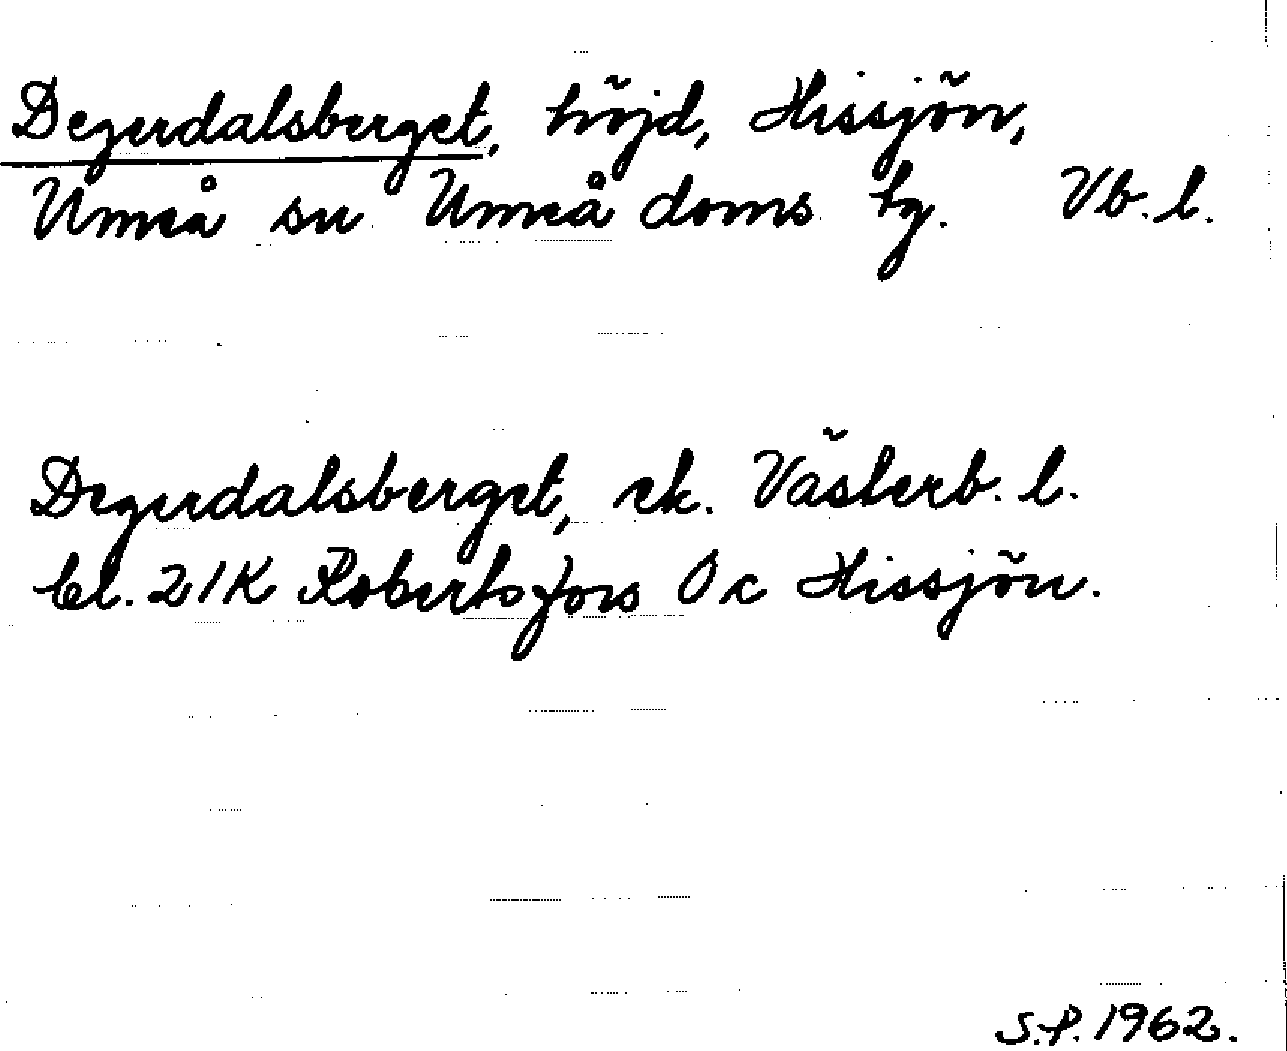 Degerdalsberget, höjd, Hissjön,
Umeå sn Umeå doms tg. Vb. l.
Degerdalsberget, ek. Västerb. l.
bl. 21K Robertsfors Ö c Hissjön.
S.P. 1962.